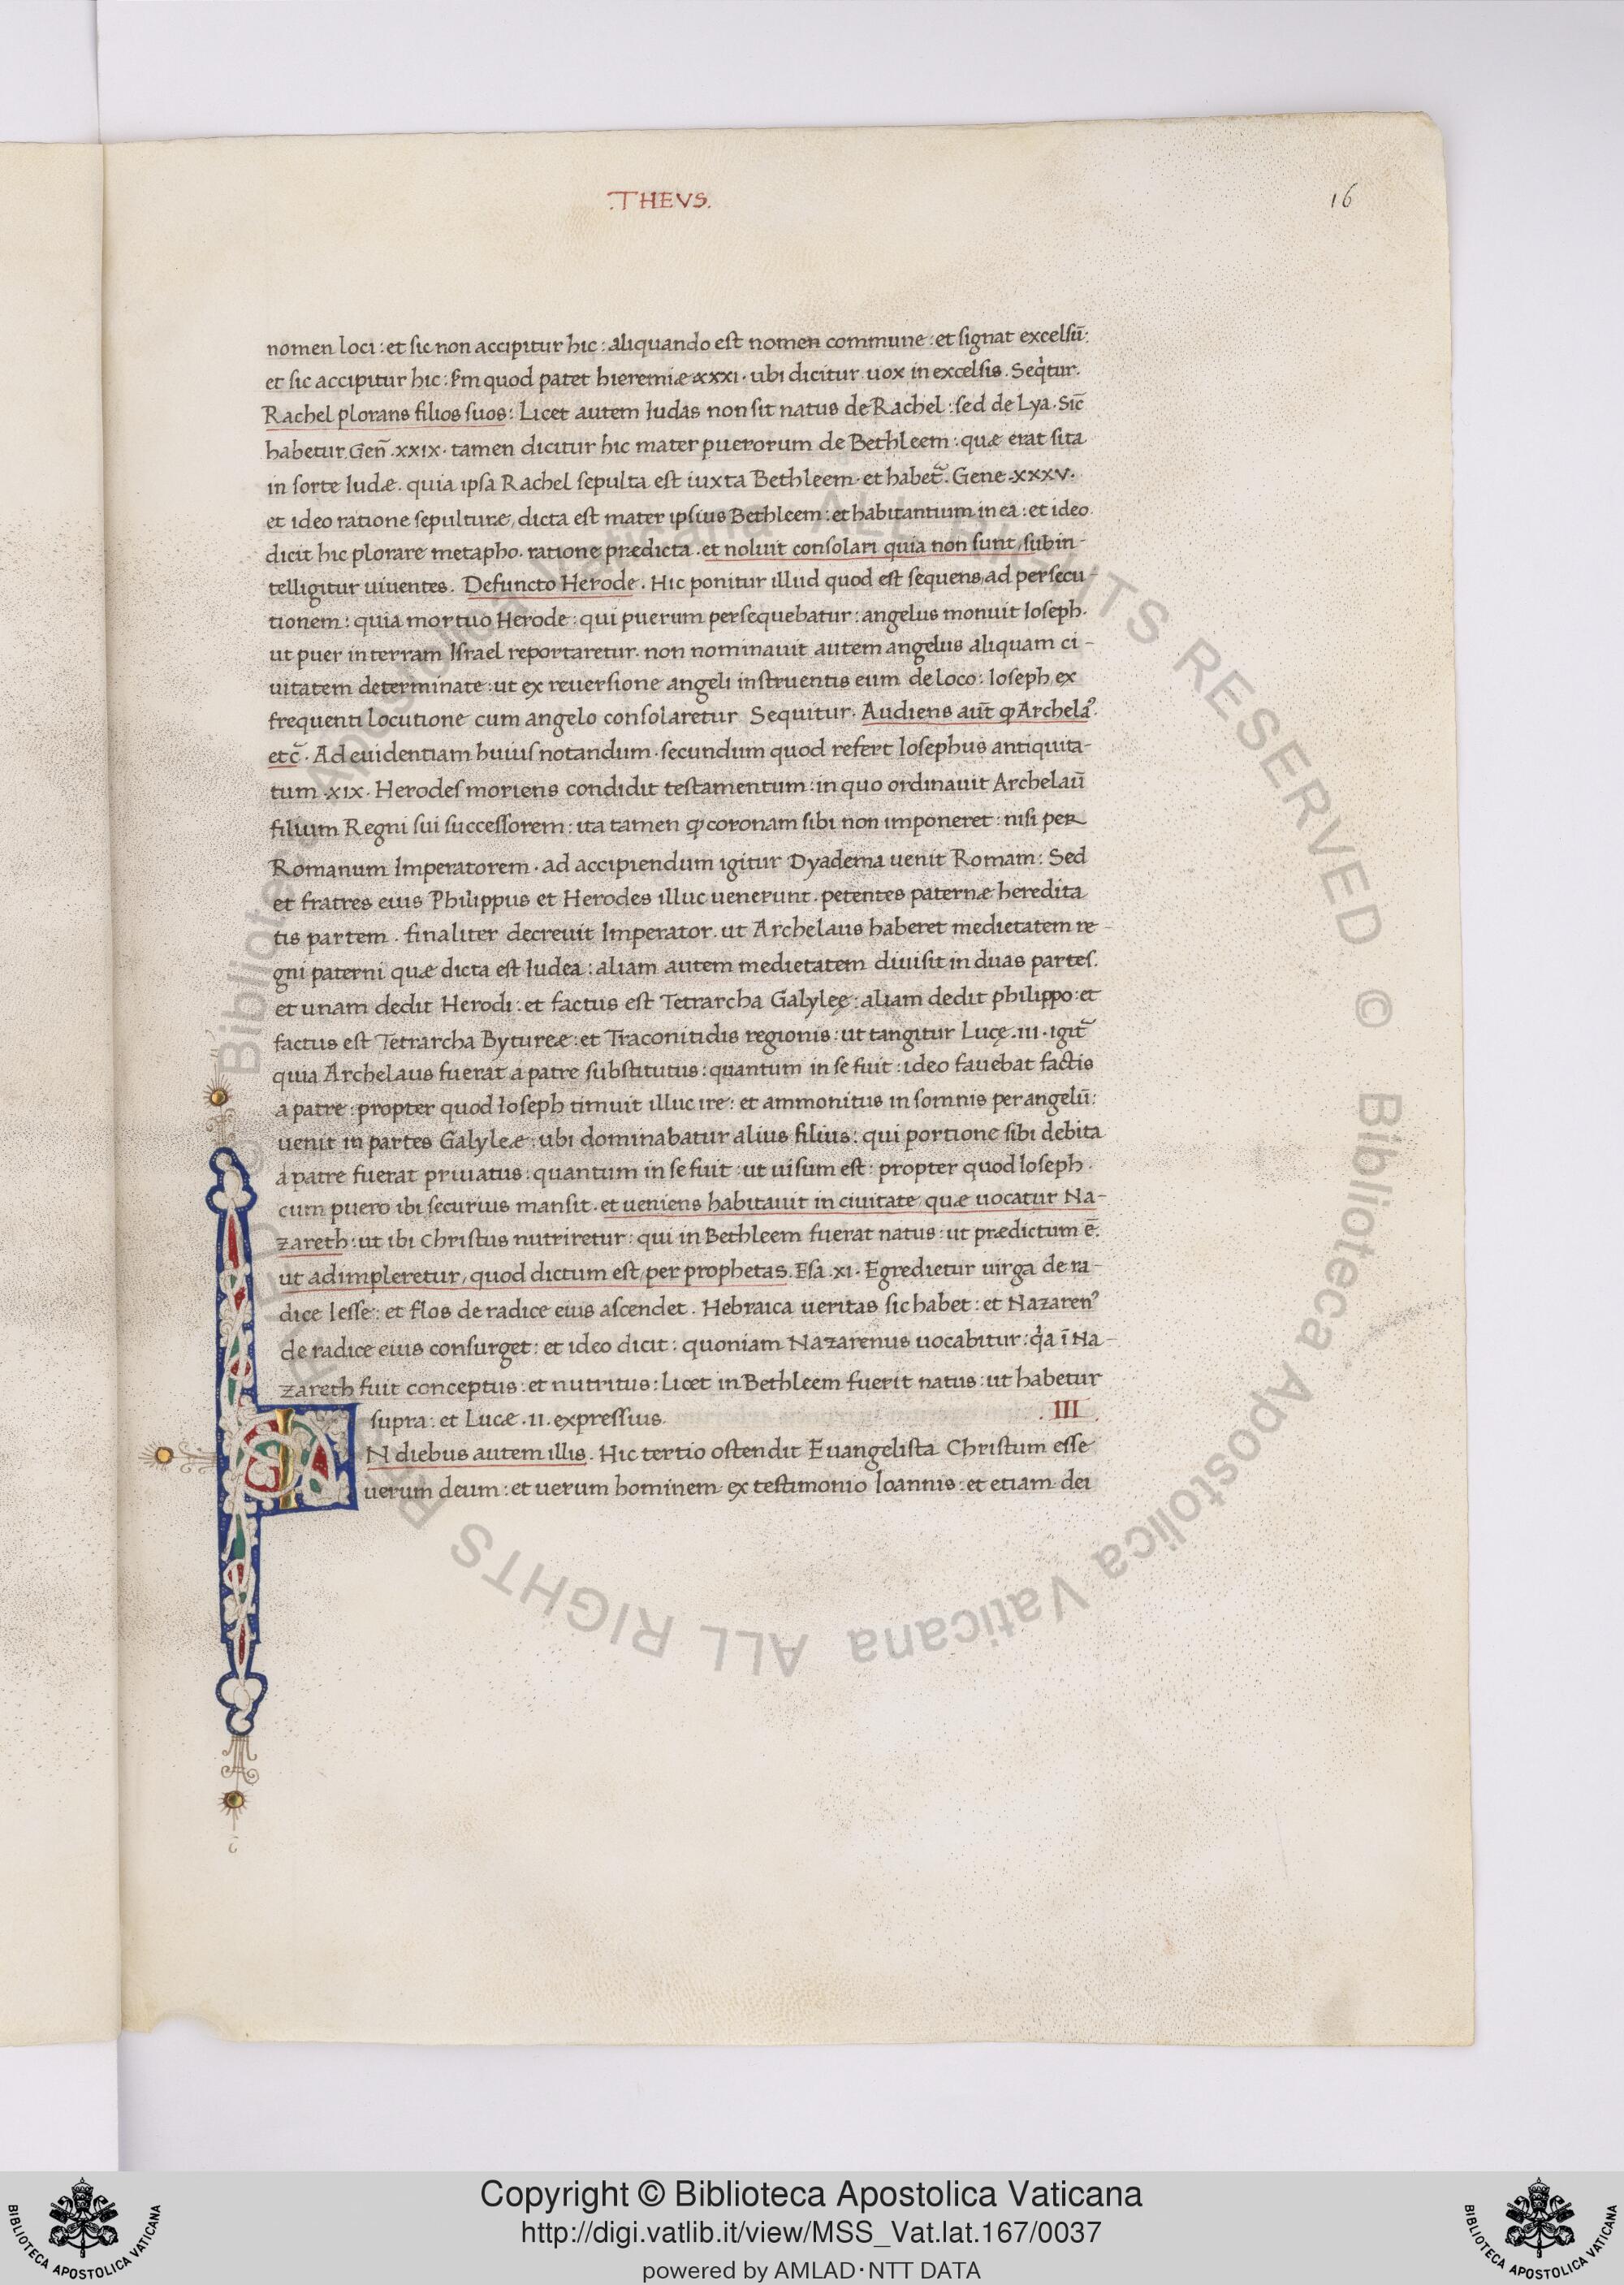 .THEVS.
16
nomen loci : et sic non accipitur hic : aliquando est nomen commune : et signat excelsū :
et sic accipitur hic : ẜm quod patet hieremiæ xxxi · ubi dicitur uox in excelsis . Seq̇tur.
Rachel plorans filios suos : Licet autem Iudas non sit natus de Rachel : sed de Lya . Sic̄
habetur Geñ .xxix· tamen dicitur hic mater puerorum de Bethleem : quæ erat sita
in sorte Iudæ . quia ipsa Rachel sepulta est iuxta Bethleem · et habet̃ . Gene .xxxv.
et ideo ratione sepulturæ, dicta est mater ipsius Bethleem : et habitantium in eā : et ideo
dicit hic plorare metapho. ratione prædicta . et noluit consolari quia non sunt, subin-
telligitur uiuentes . Defuncto Herode . Hic ponitur illud quod est sequens, ad persecu-
tionem : quia mortuo Herode : qui puerum persequebatur : angelus monuit Ioseph.
ut puer in terram Israel reportaretur. non nominauit autem angelus aliquam ci-
uitatem determinate : ut ex reuersione angeli instruentis eum de loco : Ioseph, ex
frequenti locutione cum angelo consolaretur Sequitur . Audiens aut̄ ꝙ Archelaꝰ.
etc̃ . Ad euidentiam huius notandum . secundum quod refert Iosephus antiquita-
tum .xix. Herodes moriens condidit testamentum : in quo ordinauit Archelaū
filium Regni sui successorem : ita tamen ꝙ coronam sibi non imponeret : nisi per
Romanum Imperatorem . ad accipiendum igitur Dyadema uenit Romam : Sed
et fratres eius Philippus et Herodes illuc uenerunt . petentes paternæ heredita
tis partem . finaliter decreuit Imperator. ut Archelaus haberet medietatem re-
gni paterni quæ dicta est Iudea : aliam autem medietatem diuisit in duas partes.
et unam dedit Herodi : et factus est Tetrarcha Galylę : aliam dedit philippo : et
factus est Tetrarcha Bytureæ : et Traconitidis regionis : ut tangitur Lucę .iii . igit̃
quia Archelaus fuerat a patre substitutus : quantum in se fuit : ideo fauebat factis
a patre : propter quod Ioseph timuit illuc ire : et ammonitus in somnis per angelū :
uenit in partes Galyleæ : ubi dominabatur alius filius : qui portione sibi debita
a patre fuerat priuatus : quantum in se fuit : ut uisum est : propter quod Ioseph .
cum puero ibi securius mansit . et ueniens habitauit in ciuitate, quæ uocatur Na-
zareth : ut ibi Christus nutriretur : qui in Bethleem fuerat natus : ut prædictum ē.
ut adimpleretur, quod dictum est, per prophetas . Esa .xi . Egredietur uirga de ra-
dice Iesse : et flos de radice eius ascendet . Hebraica ueritas sic habet : et Nazarenꝰ
de radice eius consurget : et ideo dicit : quoniam Nazarenus uocabitur : q̇a ī Na-
zareth fuit conceptus : et nutritus : Licet in Bethleem fuerit natus : ut habetur
supra : et Lucæ .ii. expressius. . III .
IN diebus autem illis . Hic tertio ostendit Euangelista Christum esse
uerum deum : et uerum hominem ex testimonio Ioannis : et etiam dei
© Biblioteca Apostolica Vaticana ALL RIGHTS RESERVED © Biblioteca Apostolica Vaticana ALL RIGHTS RESERVED
Copyright © Biblioteca Apostolica Vaticana
http://digi.vatlib.it/view/MSS_Vat.lat.167/0037
powered by AMLAD·NTT DATA
BIBLIOTECA APOSTOLICA VATICANA
BIBLIOTECA APOSTOLICA VATICANA